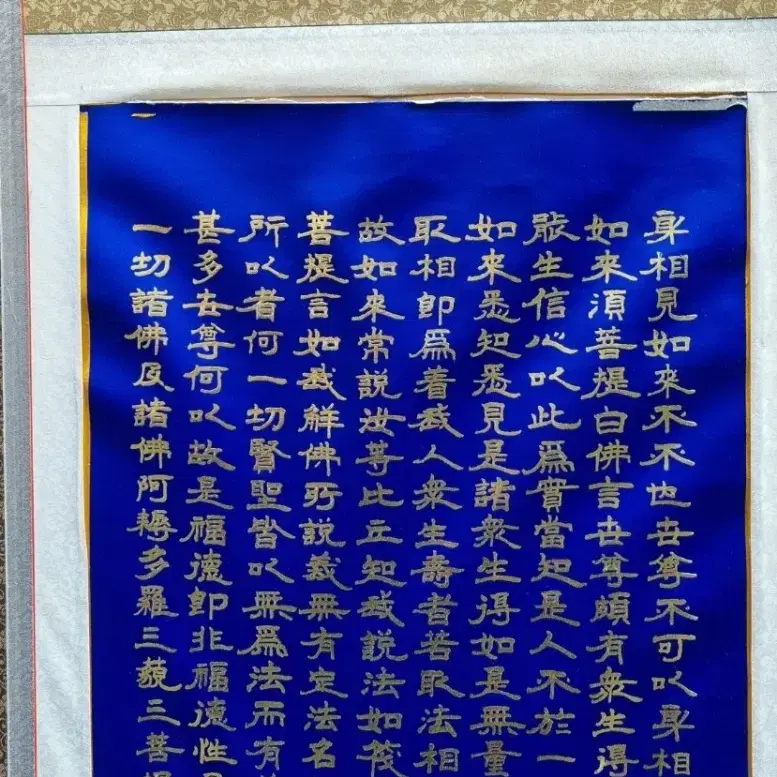 身相見如來不不也世尊不可以身相
如來須菩提白佛言世尊頗有衆生得
能生信心以此爲實當知是人不於一
如來悉知悉見是諸衆生得如是無量
取相即爲着我人衆生壽者若取法相
故如來常說汝等比丘知我說法如筏
菩提言如我解佛所說義無有定法名
所以者何一切賢聖皆以無爲法而有
甚多世尊何以故是福德即非福德性
一切諸佛及諸佛阿耨多羅三藐三菩提